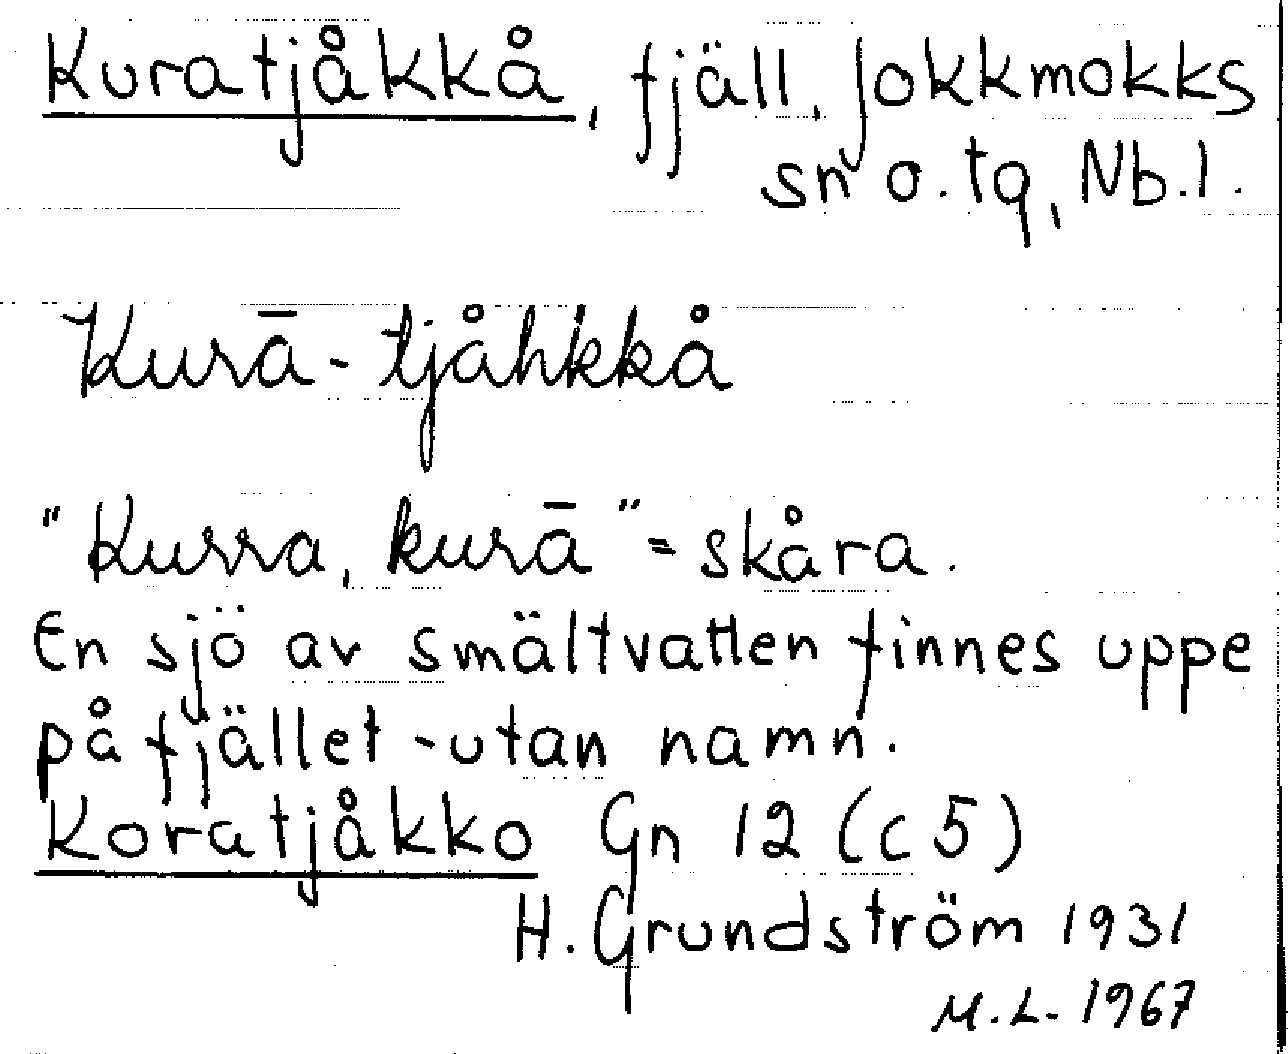 Kuratjåkkå, fjäll, Jokkmokks
sn o. tg, Nb.l.
Kurā-tjåhkkå
"Kurra, kurā" = skåra.
En sjö av smältvatten finnes uppe
på fjället - utan namn.
Koratjåkko Gn 12 (c5)
H. Grundström 1931
M.L. 1967